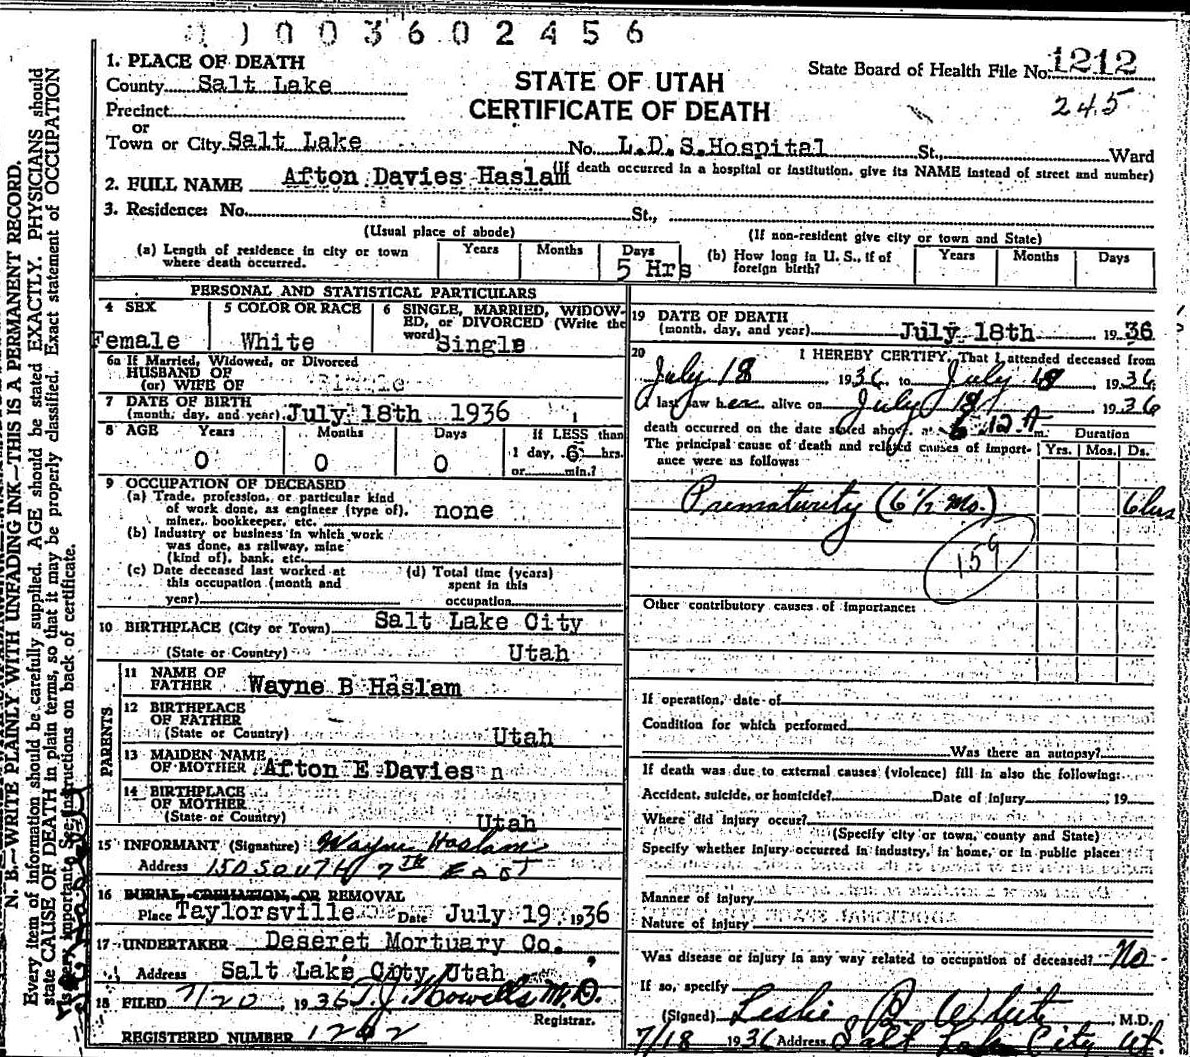 1003602456
1. PLACE OF DEATH
County Salt Lake
Precinct
or
Town or City Salt Lake No. L.D.S.Hospital St., Ward
STATE OF UTAH
CERTIFICATE OF DEATH
State Board of Health File No. 1212
245
(If death occurred in a hospital or institution, give its NAME instead of street and number)
2. FULL NAME Afton Davies Haslam
3. Residence: No. St.,
(Usual place of abode) (If non-resident give city or town and State)
(a) Length of residence in city or town where death occurred. Years Months Days 5 Hrs
(b) How long in U. S., if of foreign birth? Years Months Days
PERSONAL AND STATISTICAL PARTICULARS
4 SEX Female
5 COLOR OR RACE White
6 SINGLE, MARRIED, WIDOWED, or DIVORCED (Write the word) Single
6a If Married, Widowed, or Divorced
HUSBAND OF
(or) WIFE OF
7 DATE OF BIRTH
(month, day, and year) July 18th 1936
8 AGE Years Months Days If LESS than
0 0 0 1 day, 6 hrs.
or min.?
9 OCCUPATION OF DECEASED
(a) Trade, profession, or particular kind
of work done, as engineer (type of),
miner, bookkeeper, etc. none
(b) Industry or business in which work
was done, as railway, mine
(kind of), bank, etc.
(c) Date deceased last worked at
this occupation (month and
year)
(d) Total time (years)
spent in this
occupation
10 BIRTHPLACE (City or Town) Salt Lake City
(State or Country) Utah
PARENTS
11 NAME OF FATHER Wayne B Haslam
12 BIRTHPLACE OF FATHER
(State or Country) Utah
13 MAIDEN NAME OF MOTHER Afton E Davies n
14 BIRTHPLACE OF MOTHER
(State or Country) Utah
15 INFORMANT (Signature) Wayne Haslam
Address 150 SOUTH 7TH EAST
16 BURIAL, CREMATION, OR REMOVAL
Place Taylorsville Date July 19 1936
17 UNDERTAKER Deseret Mortuary Co.
Address Salt Lake City Utah
18 FILED 7/20, 1936 T. J. Howells M.D.
Registrar.
REGISTERED NUMBER 1202
19 DATE OF DEATH
(month, day, and year) July 18th 1936
20 I HEREBY CERTIFY, That I attended deceased from
July 18, 1936 to July 18, 1936
I last saw her alive on July 18, 1936
death occurred on the date stated above, at 6:12 A m. Duration
The principal cause of death and related causes of importance were as follows: Yrs. Mos. Ds.
Prematurity (6 1/2 Mo.) 6 hrs
159
Other contributory causes of importance:
If operation, date of
Condition for which performed
Was there an autopsy?
If death was due to external causes (violence) fill in also the following:
Accident, suicide, or homicide? Date of injury , 19
Where did injury occur?
(Specify city or town, county and State)
Specify whether injury occurred in industry, in home, or in public place:
Manner of injury
Nature of injury
Was disease or injury in any way related to occupation of deceased? No
If so, specify
(Signed) Leslie B White, M.D.
7/18 1936 Address Salt Lake City Ut.
N. B.—WRITE PLAINLY WITH UNFADING INK—THIS IS A PERMANENT RECORD.
Every item of information should be carefully supplied. AGE should be stated EXACTLY. PHYSICIANS should
state CAUSE OF DEATH in plain terms, so that it may be properly classified. Exact statement of OCCUPATION
is very important. See instructions on back of certificate.